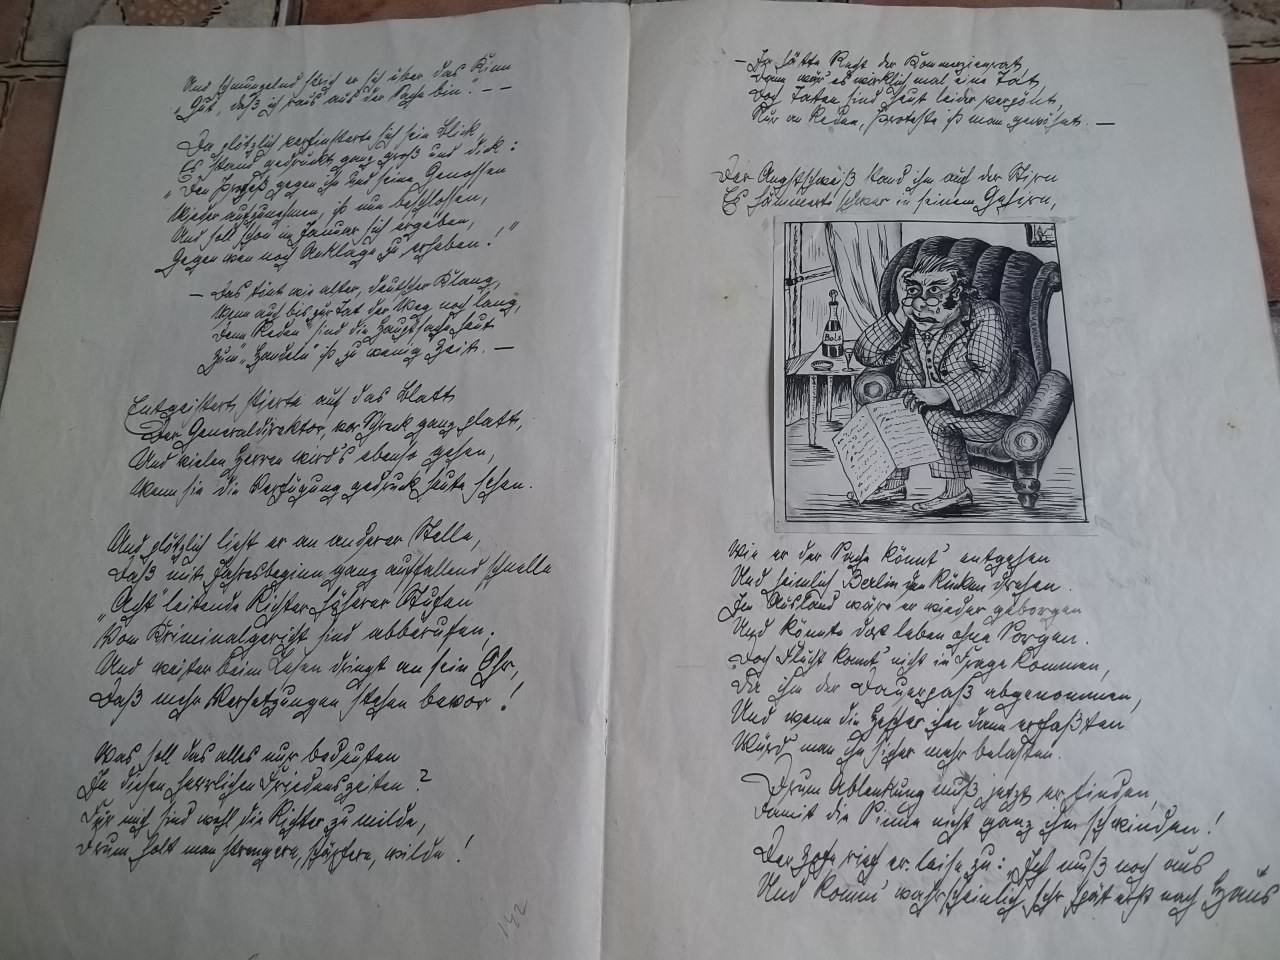 Und schmunzelnd strich er sich über das Kinn
„Gut, daß ich raus aus der Sache bin." – –
Da plötzlich verfinsterte sich sein Blick,
Es stand gedruckt ganz groß und dick:
„Den Prozeß gegen ihn und seine Genossen
Wieder aufzunehmen, ist nun beschlossen,
Und soll schon im Januar sich ergeben,
Gegen wen noch Anklage zu erheben!"
– Das tönt wie alter, deutscher Klang,
Wenn auch bis zur Tat der Weg noch lang,
Denn „Reden" sind die Hauptsache heut
Zum „Handeln" ist zu wenig Zeit. –
Entgeistert stierte auf das Blatt
Der Generaldirektor, vor Schreck ganz platt,
Und vielen Herren wird's ebenso gehen,
Wenn sie die Verfügung gedruckt heute sehen.
Und plötzlich liest er an anderer Stelle,
Daß mit Jahresbeginn ganz auffallend schnelle
„Acht" leitende Richter höherer Stufen
Vom Kriminalgericht sind abberufen;
Und weiter beim Lesen dringt an sein Ohr,
Daß mehr Versetzungen stehen bevor!
Was soll das alles nur bedeuten
In diesen herrlichen Friedenszeiten?
Für uns sind wohl die Richter zu milde,
Drum holt man strengere, schärfere, wilde!
142
– Da hätte Recht der Kommerzienrat,
Dann wär' es wirklich mal eine Tat,
Doch Taten sind heut leider verpönt,
Nur an Reden, Proteste ist man gewöhnt. –
Der Angstschweiß stand ihm auf der Stirn
Es hämmerte schwer in seinem Gehirn,
Bols
Wie er der Sache könnt' entgehen
Und heimlich Berlin den Rücken drehen.
Im Ausland wäre er wieder geborgen
Und könnte dort leben ohne Sorgen.
Doch Flucht konnt' nicht in Frage kommen,
Da ihm der Dauerpaß abgenommen,
Und wenn die Häscher ihn dann erfaßten
Würd' man ihn sicher mehr belasten.
Drum Ablenkung muß jetzt er finden,
Damit die Sinne nicht ganz ihm schwinden!
Der Zofe rief er leise zu: „Ich muß noch aus
Und komm' wahrscheinlich sehr spät erst nach Haus